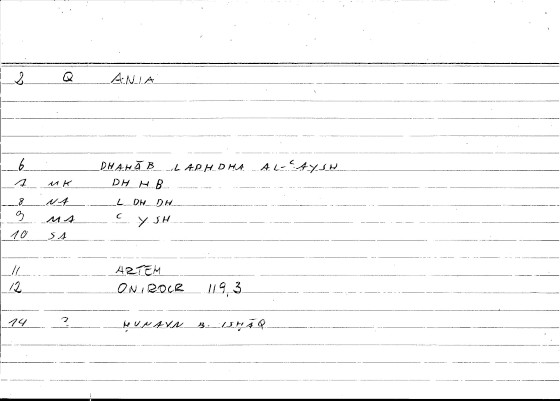 2 Q ANIA
6 DHAHĀB LADHDHA AL-ʿAYSH
7 MK DH H B
8 NA L DH DH
9 MA ʿ Y SH
10 SA
11 ARTEM
12 ONIROCR 119,3
14 ? ḤUNAYN B. ISḤĀQ